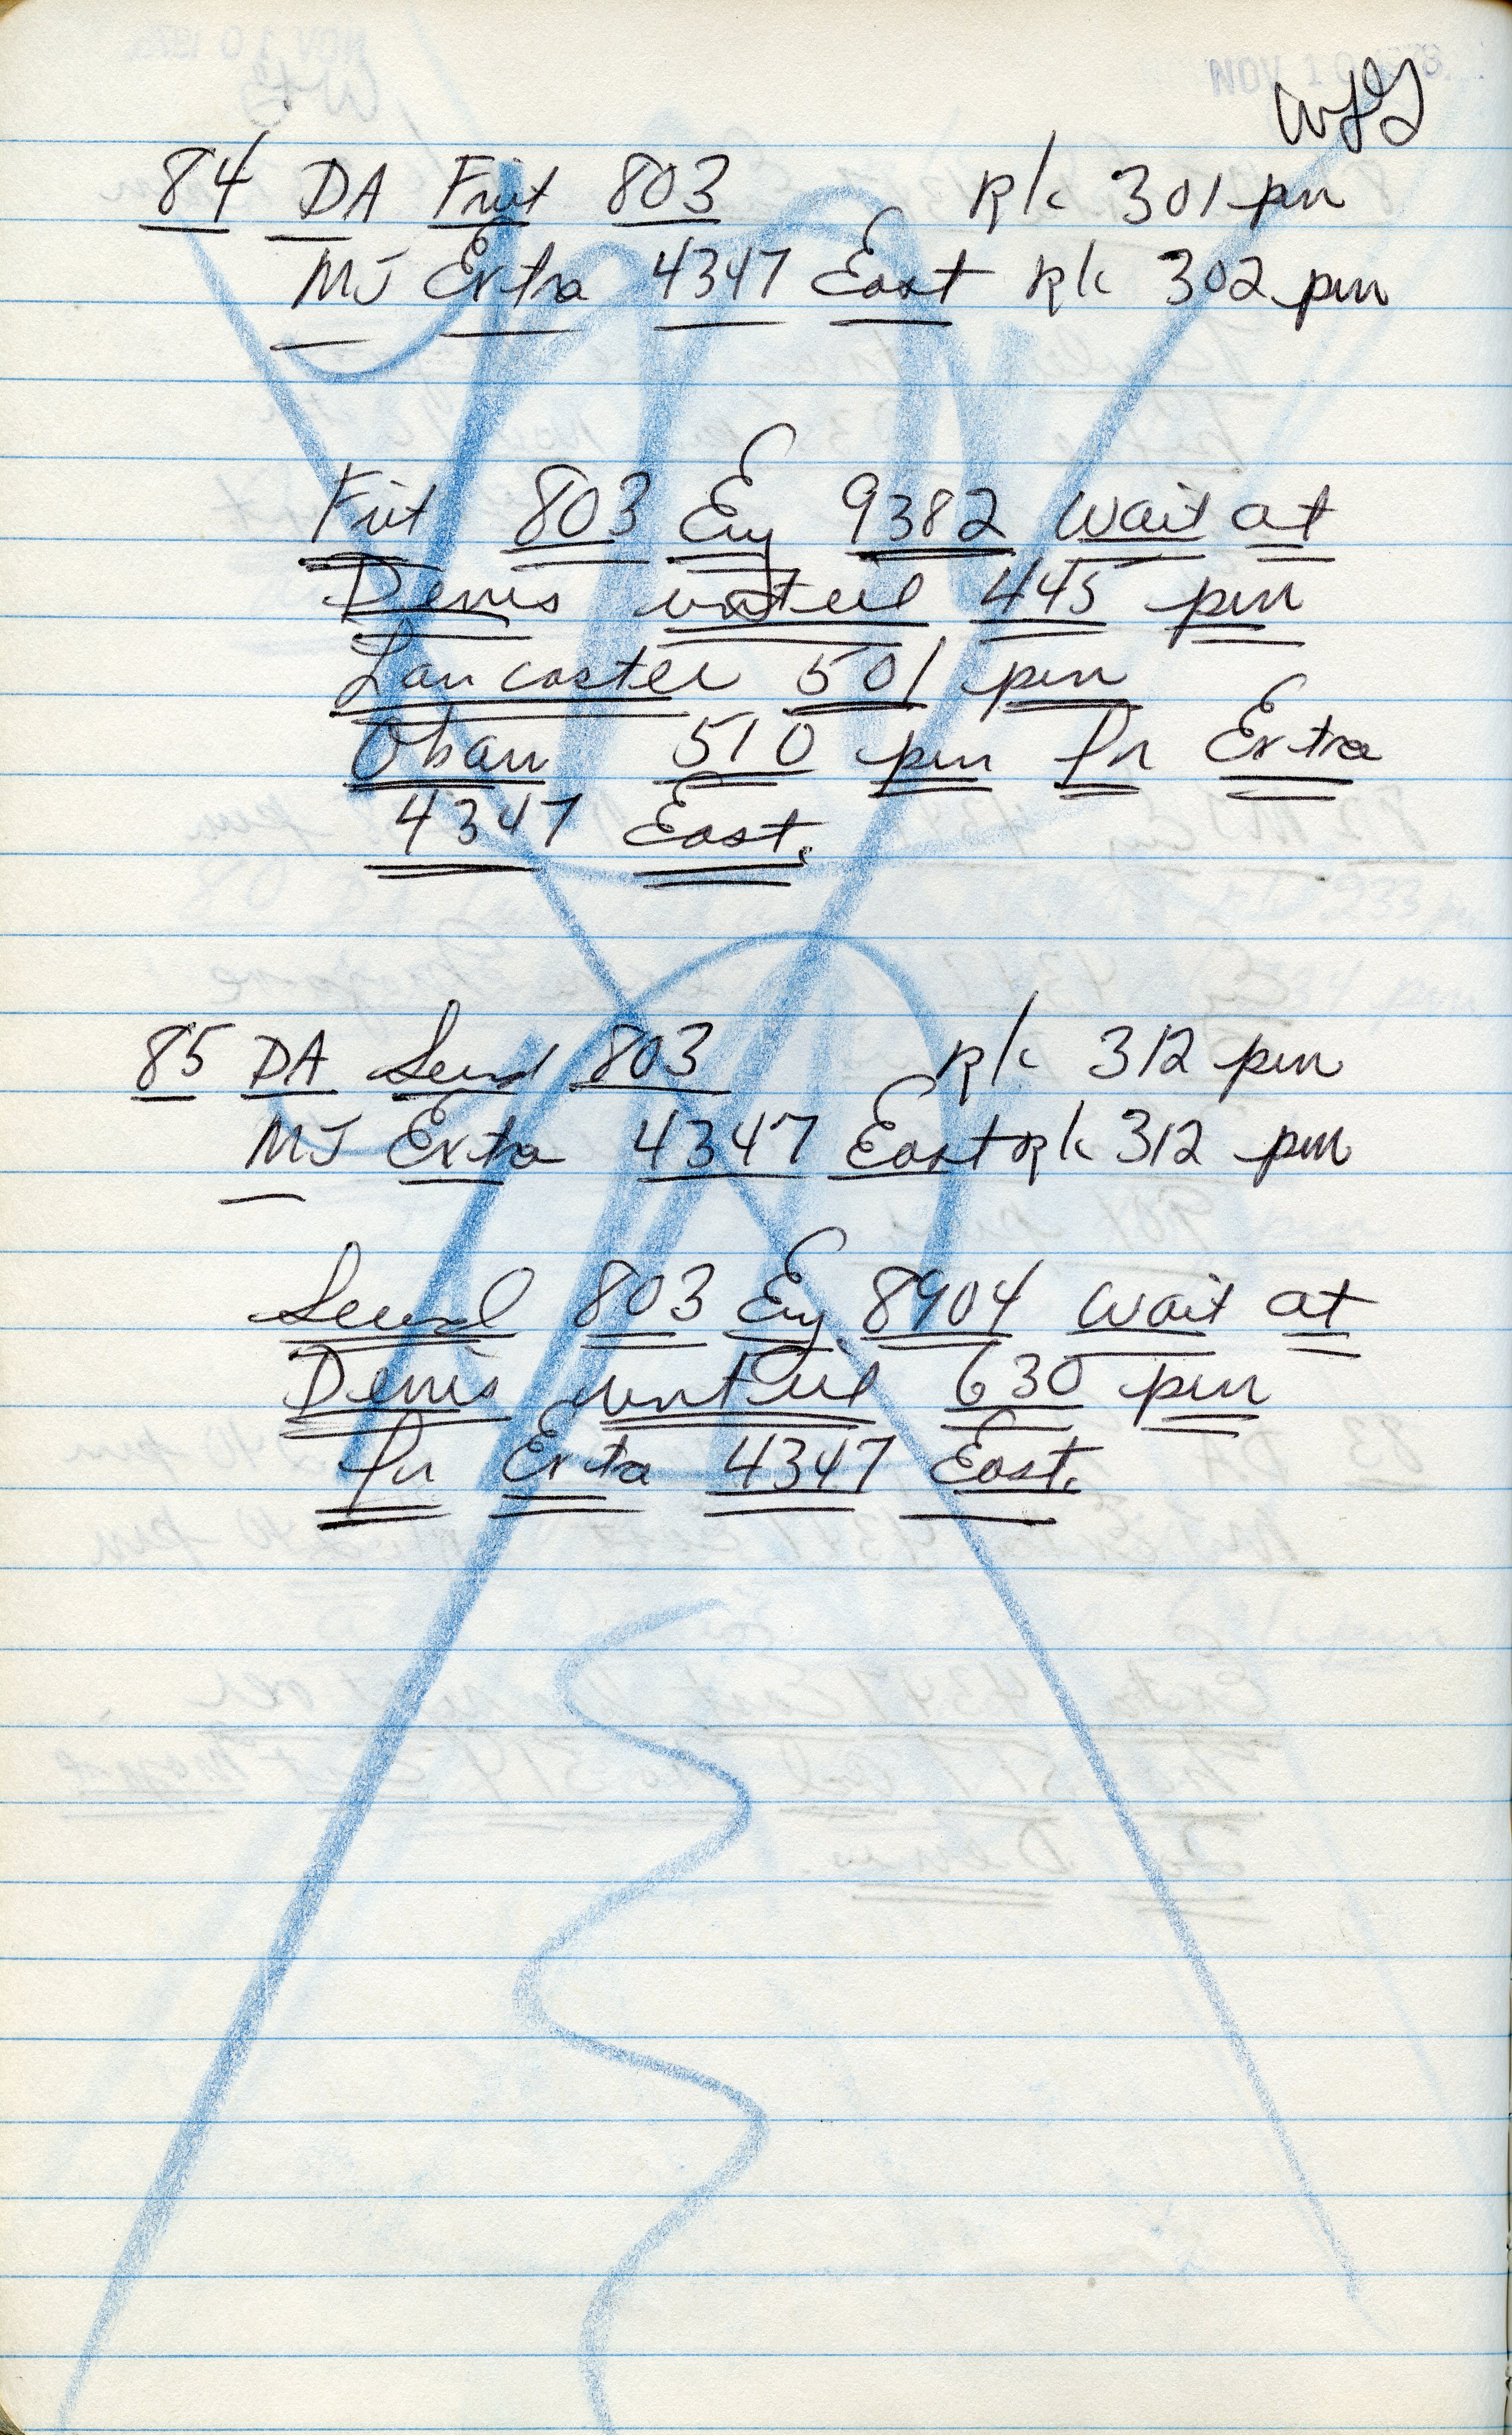 NOV 10
WJG
84 DA Frst 803 R/c 301 pm
MJ Extra 4347 East R/c 302 pm
Frst 803 Eng 9382 Wait at
Denis until 445 pm
Lancaster 501 pm
Oban 510 pm for Extra
4347 East.
85 DA Second 803 R/c 312 pm
MJ Extra 4347 East R/c 312 pm
Second 803 Eng. 8904 Wait at
Denis until 630 pm
for Extra 4347 East.